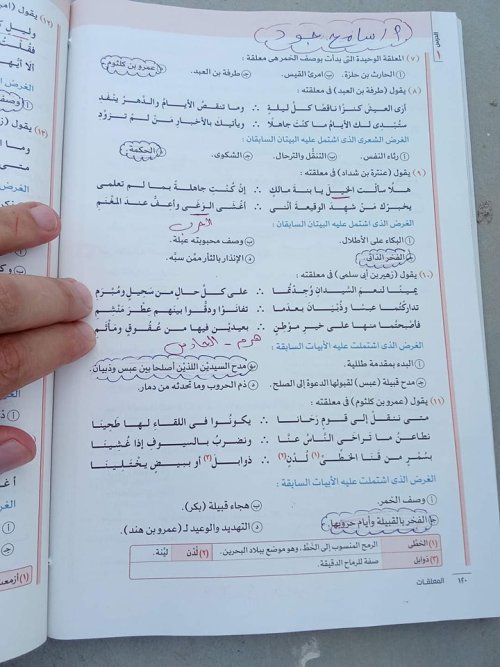 أ/ سامح جود
الدرس
(٧) المعلقة الوحيدة التى بدأت بوصف الخمر هى معلقة :
أ الحارث بن حلزة. ب امرئ القيس. ج طرفة بن العبد. د عمرو بن كلثوم.
(٨) يقول (طرفة بن العبد) فى معلقته :
أرى العيش كنزًا ناقصًا كل ليلةٍ ∴ وما تنقص الأيام والدهر ينفد
ستبدى لك الأيام ما كنت جاهلًا ∴ ويأتيك بالأخبار من لم تزود
الغرض الشعرى الذى اشتمل عليه البيتان السابقان :
أ رثاء النفس. ب التنقُّل والترحال. ج الشكوى. د الحكمة.
(٩) يقول (عنترة بن شداد) فى معلقته :
هلا سألت الخيل يا بنة مالك ∴ إن كنت جاهلة بما لم تعلمى
يخبرك من شهد الوقيعة أننى ∴ أغشى الوغى وأعف عند المغنم
الحرب
الغرض الذى اشتمل عليه البيتان السابقان :
أ البكاء على الأطلال. ب وصف محبوبته عبلة.
ج الفخر الذاتى. د الإنذار بالثأر ممَّن سبَّه.
(١٠) يقول (زهير بن أبى سلمى) فى معلقته :
يمينًا لنعم السيدان وجدتما ∴ على كل حال من سحيل ومبرم
تداركتما عبسًا وذبيان بعدما ∴ تفانوا ودقوا بينهم عطر منشم
فأصبحتما منها على خير موطن ∴ بعيدين فيها من عقوق ومأثم
هرم - الحارث
الغرض الذى اشتملت عليه الأبيات السابقة :
أ البدء بمقدمة طللية. ب مدح السيدَيْن اللذَيْن أصلحا بين عبس وذبيان.
ج مدح قبيلة (عبس) لقبولها الدعوة إلى الصلح. د ذم الحروب وما تحدثه من دمار.
(١١) يقول (عمرو بن كلثوم) فى معلقته :
متى ننقل إلى قوم رحانا ∴ يكونوا فى اللقاء لها طحينا
نطاعن ما تراخى الناس عنا ∴ ونضرب بالسيوف إذا غشينا
بسمر من قنا الخطى (١) لدن (٢) ∴ ذوابل (٣) أو ببيض يختلينا
الغرض الذى اشتملت عليه الأبيات السابقة :
أ وصف الخمر. ب هجاء قبيلة (بكر).
ج الفخر بالقبيلة وأيام حروبها. د التهديد والوعيد لـ (عمرو بن هند).
(١) الخطى الرمح المنسوب إلى الخَطّ، وهو موضع ببلاد البحرين. (٢) لُدْن ليِّنة.
(٣) ذوابل صفة للرماح الدقيقة.
١٤٠ المعلقات